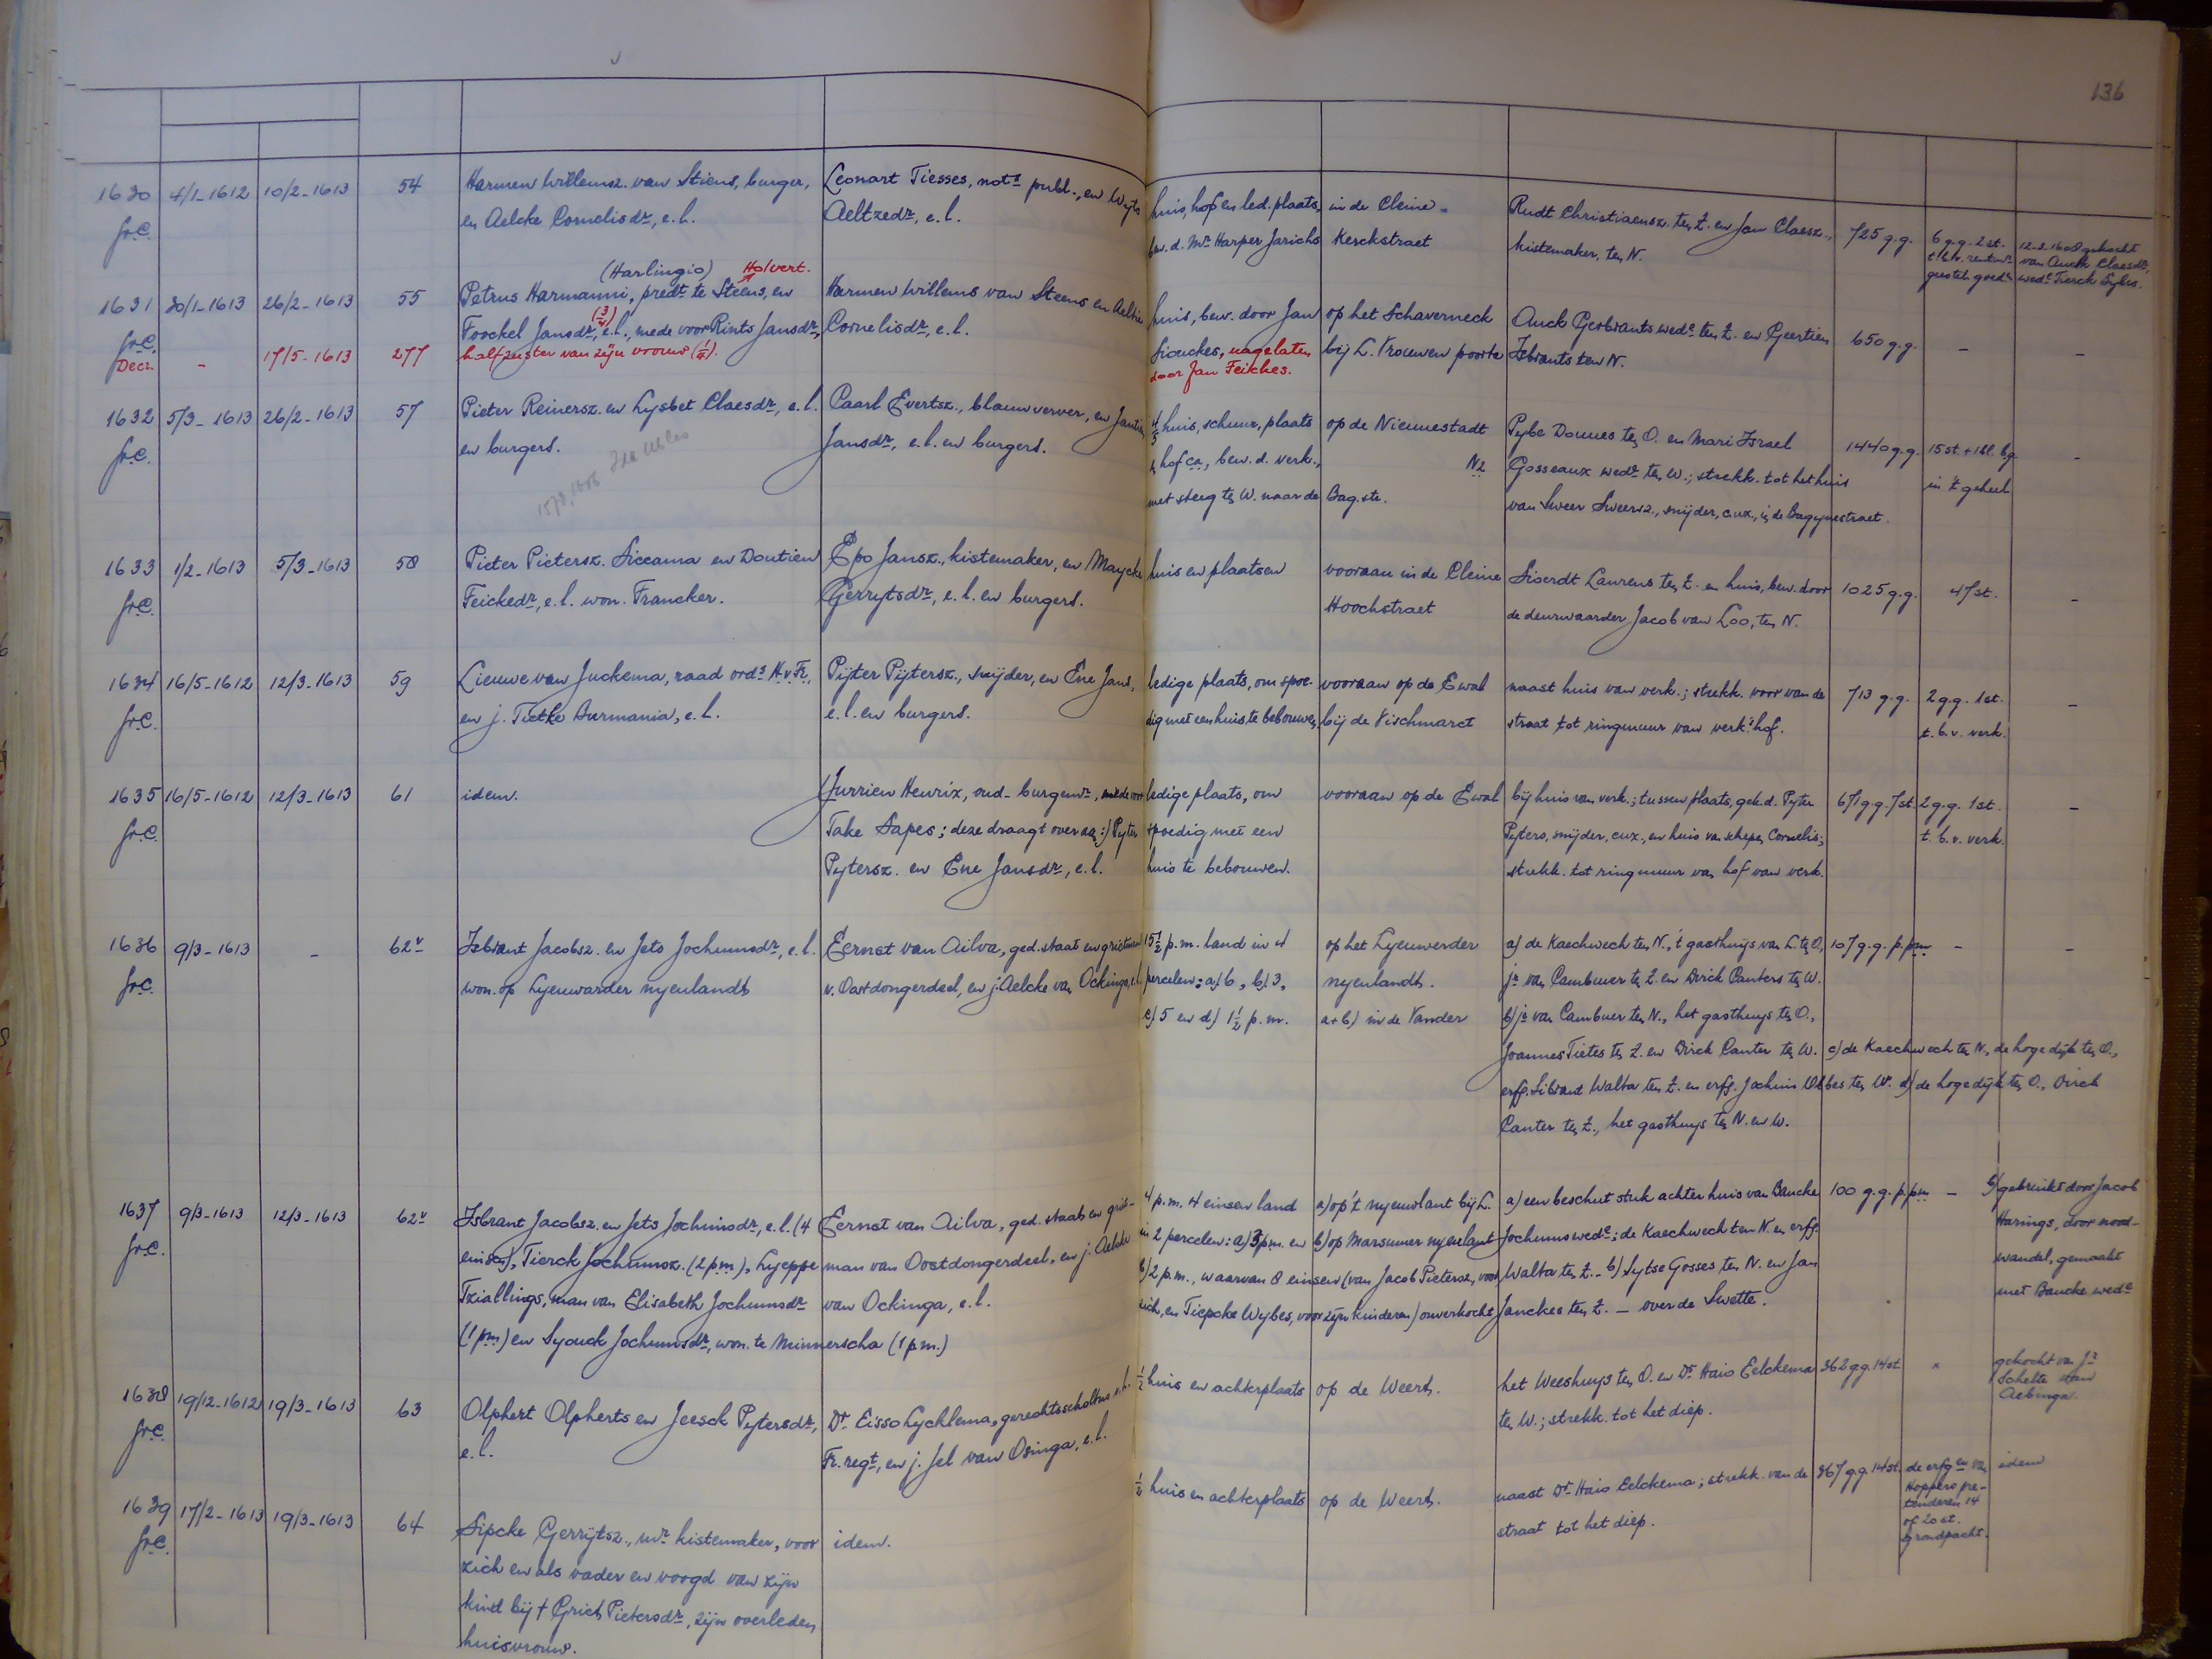 136
1630 4/1-1612 10/2-1613 54 Harmen Willemsz. van Stiens, burger, Leonart Tiesses, nots publ., en Wyts huis, hof en led. plaats, in de Cleine Rudt Christiaensz. ten Z. en Jan Claesz., 725 g.g. 6 g.g. 2 st. 12-2-1608 gekocht
fr.C. en Aelcke Cornelisdr, e.l. Aeltzedr, e.l. bew. d. Mr Harper Jarichs Kerckstraet kistemaker, ten N. t.b.v. rentmr van Anck Claesdr,
geestel. goedn wede Tierck Sybes.
(Harlingio) Holvert.
1631 30/1-1613 26/2-1613 55 Petrus Harmanni, predt te Steens, en Harmen Willems van Steens en Aeltie huis, bew. door Jan op het Schaverneck Anck Gerbrants wede ten Z. en Geertien 650 g.g. - -
fr.C. Foockel Jansdr, (3/4) e.l., mede voor Rints Jansdr, Cornelisdr, e.l. Siouckes, nagelaten bij L. Vrouwen poorte Isbrants ten N.
Decr. - 17/5-1613 277 halfzuster van zijn vrouw (1/4). door Jan Feickes.
1632 5/3-1613 26/2-1613 57 Pieter Reinersz. en Lysbet Claesdr, e.l. Caarl Evertsz., blauwverver, en Jantien 4/5 huis, schuur, plaats op de Nieuwestadt Pybe Douues ten O. en Mari Israel 1440 g.g. 15 st. + 1 bl. bg. -
fr.C. en burgers. Jansdr, e.l. en burgers. & hof ca, bew. d. verk., N2 Gosseaux wede ten W.; strekk. tot het huis in 't geheel
met steeg ten W. naar de Bag.str. van Sweer Sweersz., snijder, c.ux., in de Bagynestraet.
1633 1/2-1613 5/3-1613 58 Pieter Pietersz. Siccama en Doutien Epo Jansz., kistemaker, en Maycke huis en plaatsen vooraan in de Cleine Sioerdt Laurens ten Z. en huis, bew. door 1025 g.g. 47 st. -
fr.C. Feickedr, e.l. won. Francker. Gerrytsdr, e.l. en burgers. Hoochstraet de deurwaarder Jacob van Loo, ten N.
1634 16/5-1612 12/3-1613 59 Lieuwe van Juckema, raad ords H.v.Fr., Pijter Pijtersz., snijder, en Ene Jans, ledige plaats, om spoe- vooraan op de Ewal naast huis van verk.; strekk. voor van de 713 g.g. 2 g.g. 1 st. -
fr.C. en j. Tietke Burmania, e.l. e.l. en burgers. dig met een huis te bebouwen. bij de Vischmarct straat tot ringmuur van verk.'s hof. t.b.v. verk.
1635 16/5-1612 12/3-1613 61 idem. Jurrien Henrix, oud-burgemr, mede voor ledige plaats, om vooraan op de Ewal bij huis van verk.; tussen plaats, gek. d. Pyter 671 g.g. 7 st. 2 g.g. 1 st. -
fr.C. Take Sapes; deze draagt over aan: Pyter spoedig met een Pyters, snijder, c.ux., en huis van schepen Cornelis; t.b.v. verk.
Pytersz. en Ene Jansdr, e.l. huis te bebouwen. strekk. tot ringmuur van hof van verk.
1636 9/3-1613 - 62v Isbrant Jacobsz. en Jets Jochumsdr, e.l. Eernst van Ailva, ged. staat en grietman 15 1/2 p.m. land in 4 op het Lyeuwerder a) de Kaechwech ten N., 't gasthuys van L. ten O., 107 g.g. p.pm - -
fr.C. won. op Lyeuwarder nyenlandt v. Oostdongerdeel, en j. Aelcke van Ockinga, e.l. percelen: a) 6, b) 3, nyenlandt. jr van Cambuer ten Z. en Dirck Canters ten W.
c) 5 en d) 1 1/2 p.m. a+b) in de Vander b) jr van Cambuer ten N., het gasthuys ten O.,
Joannes Tietes ten Z. en Dirck Canter ten W. c) de Kaechwech ten N., de hoge dijk ten O.,
erfg. Sibrant Walta ten Z. en erfg. Jochim Wibes ten W. d) de hoge dijk ten O., Dirck
Canter ten Z., het gasthuys ten N. en W.
1637 9/3-1613 12/3-1613 62v Isbrant Jacobsz. en Jets Jochimsdr, e.l. (4 Eernst van Ailva, ged. staat en griet- 4 p.m. 4 einsen land a) op 't nyenlant bij L. a) een beschut stuk achter huis van Baucke 100 g.g. p.pm - b) gebruikt door Jacob
fr.C. einsen), Tierck Jochumsz. (2 pm), Lyeppe man van Oostdongerdeel, en j. Aelcke in 2 percelen: a) 3 p.m. en b) op Marsumer nyenlant Jochums wede; de Kaechwech ten N. en erfg. Harings, door nood-
Tziallings, man van Elisabeth Jochumsdr van Ockinga, e.l. b) 2 p.m., waarvan 8 einsen (van Jacob Pietersz, voor Walta ten Z. - b) Sytse Gosses ten N. en Jan wandel, gemaakt
(1 pm) en Syouck Jochumsdr, won. te Minnerscha (1 p.m.) zich, en Tiepcke Wybes, voor zijn kinderen) onverkocht Janckes ten Z. - over de Swette. met Baucke wede
1638 19/12-1612 19/3-1613 63 Olphert Olpherts en Jeesck Pytersdr, Dr Eisso Lychlema, gerechtsscholtus 1/2 huis en achterplaats op de Weerd. het Weeshuys ten O. en Dr Haio Eelckema 362 g.g. 14 st. x gekocht van Jr
fr.C. e.l. Fr. regt, en j. Jel van Osinga, e.l. ten W.; strekk. tot het diep. Schelte van
Aebinga.
1639 17/2-1613 19/3-1613 64 Sipcke Gerrijtsz., mr kistemaker, voor idem. 1/2 huis en achterplaats op de Weerd. naast Dr Haio Eelckema; strekk. van de 367 g.g. 14 st. de erfgen van idem
fr.C. zich en als vader en voogd van zijn straat tot het diep. Hoppers pre-
kind bij † Griet Pietersdr, zijn overleden tenderen 14
huisvrouw. of 20 st.
grondpacht.